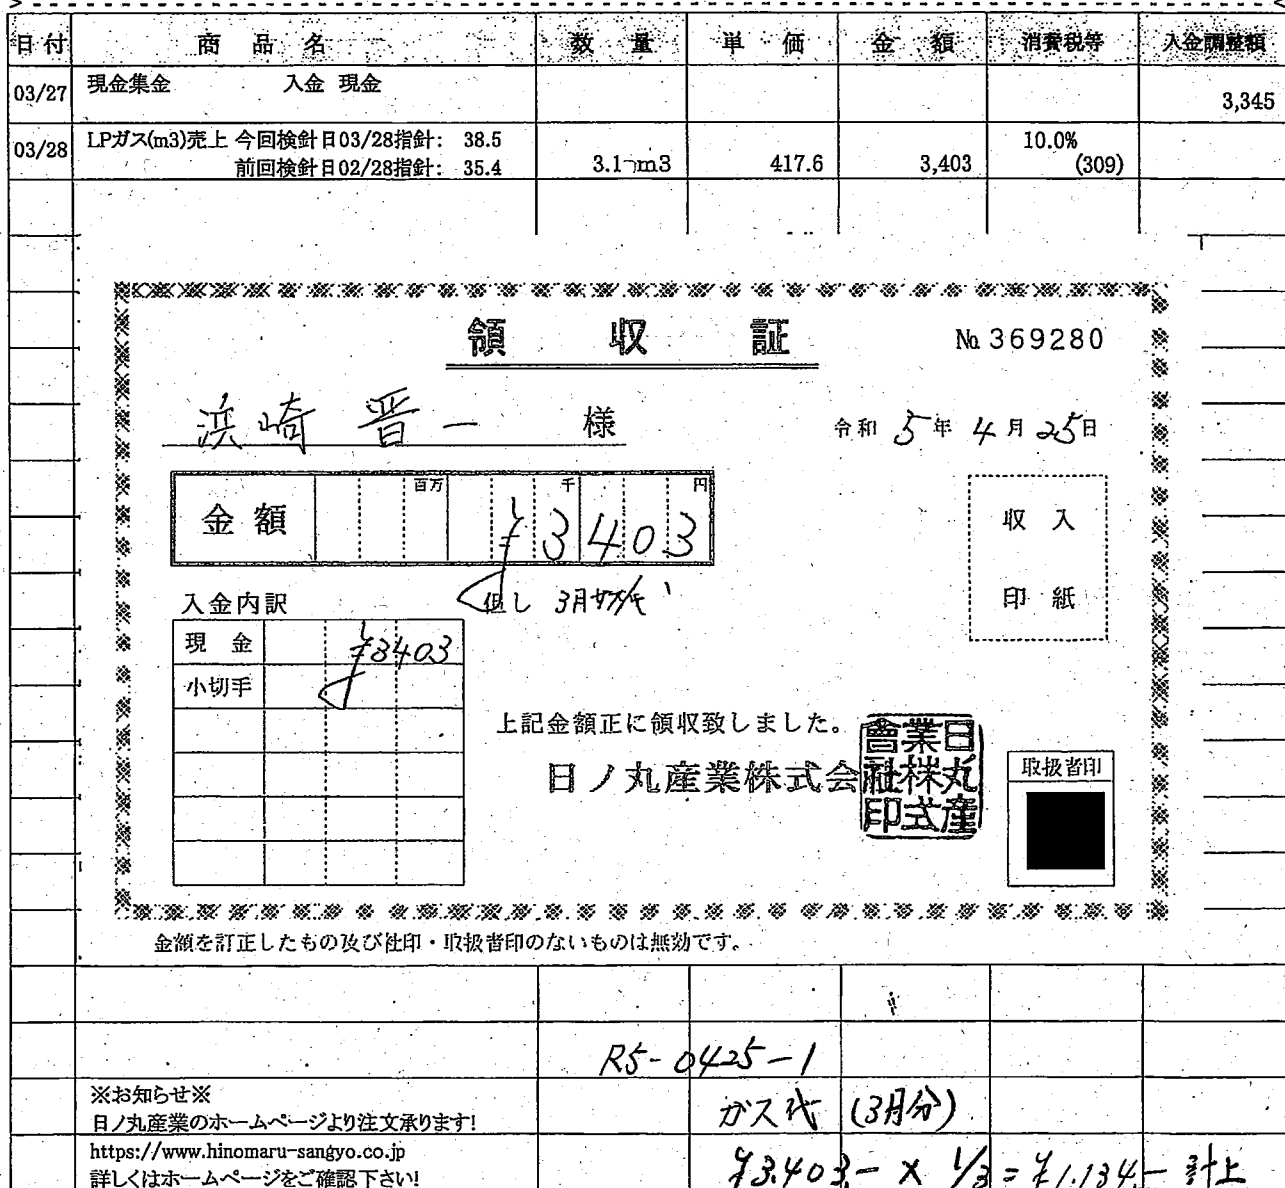 日付 商品名 数量 単価 金額 消費税等 入金調整額
03/27 現金集金 入金 現金 3,345
03/28 LPガス(m3)売上 今回検針日03/28指針: 38.5 10.0%
前回検針日02/28指針: 35.4 3.1 m3 417.6 3,403 (309)
領収証 № 369280
浜崎 晋一 様 令和 5年 4月 25日
金額 百万 千 円
¥3403
収入
印紙
但し 3月ガス代
入金内訳
現金 ¥3403
小切手
上記金額正に領収致しました。
日ノ丸産業株式会社
日丸産業株式會社印
取扱者印
金額を訂正したもの及び社印・取扱者印のないものは無効です。
R5-0425-1
※お知らせ※
ガス代 (3月分)
日ノ丸産業のホームページより注文承ります!
https://www.hinomaru-sangyo.co.jp
¥3,403- × 1/3 = ¥1,134- 計上
詳しくはホームページをご確認下さい!